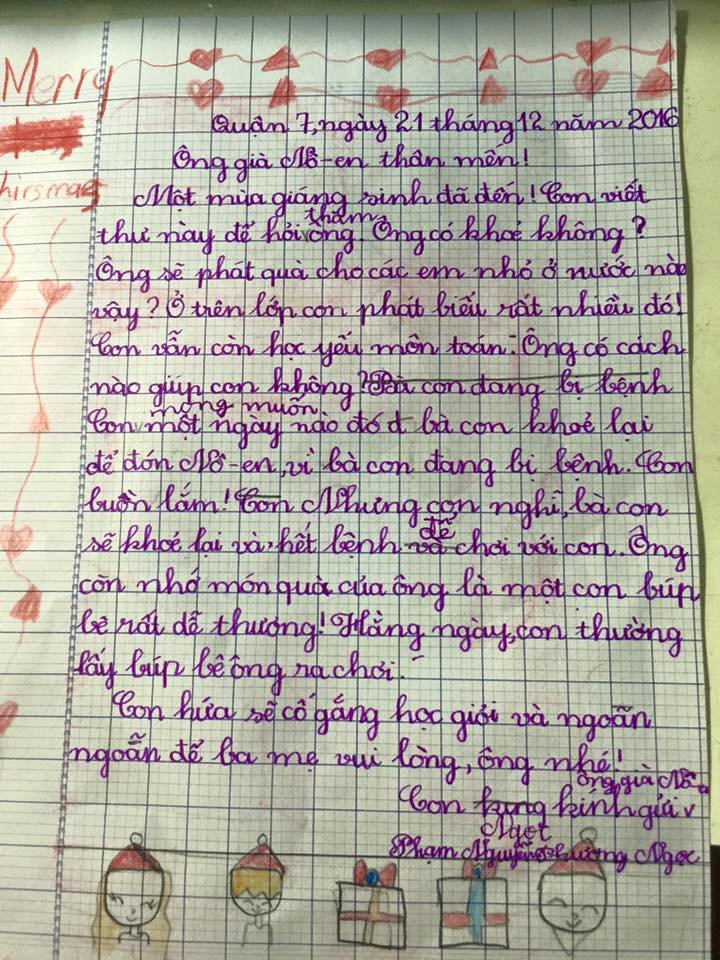 Merry
hirsmas
Quận 7, ngày 21 tháng 12 năm 2016
Ông già Nô-en thân mến!
Một mùa giáng sinh đã đến! Con viết
thư này để hỏi thăm ông. Ông có khoẻ không?
Ông sẽ phát quà cho các em nhỏ ở nước nào
vậy? Ở trên lớp con phát biểu rất nhiều đó!
Con vẫn còn học yếu môn toán. Ông có cách
nào giúp con không? Bà con đang bị bệnh
Con mong muốn một ngày nào đó d bà con khoẻ lại
để đón Nô-en, vì bà con đang bị bệnh. Con
buồn lắm! Con Nhưng con nghĩ, bà con
sẽ khoẻ lại và hết bệnh và để chơi với con. Ông
còn nhớ món quà của ông là một con búp
bê rất dễ thương! Hằng ngày, con thường
lấy búp bê ông ra chơi.
Con hứa sẽ cố gắng học giỏi và ngoãn
ngoãn để ba mẹ vui lòng, ông nhé!
ông già Nô
Con kung kính gửi
Ngọt
Phạm Nguyễn Phương Ngọc